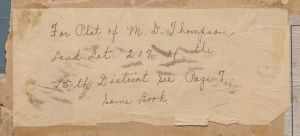 For Plat of M. D. Thompson
Land Lot 207 of the
15th District See Page 7
Same Book